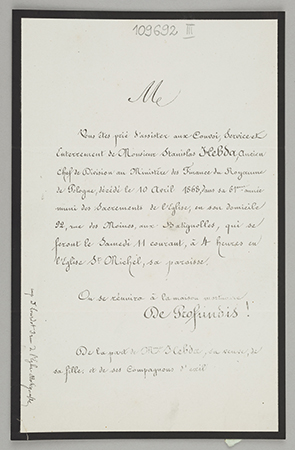 109692 III
M
Vous êtes prié d'assister aux Convoi, Service et
Enterrement de Monsieur Stanislas Hebda, Ancien
Chef de Division au Ministère des Finances du Royaume
de Pologne, décédé le 10 Avril 1868, dans sa 61me année
muni des Sacrements de l'Eglise, en son domicile
92, rue des Moines, aux Batignolles, qui se
feront le Samedi 11 courant, à 4 heures en
l'Eglise St Michel, sa paroisse.
On se réunira à la maison mortuaire
De Profundis!
De la part de Mme Hebda, sa veuve, de
sa fille; et de ses Compagnons d'exil